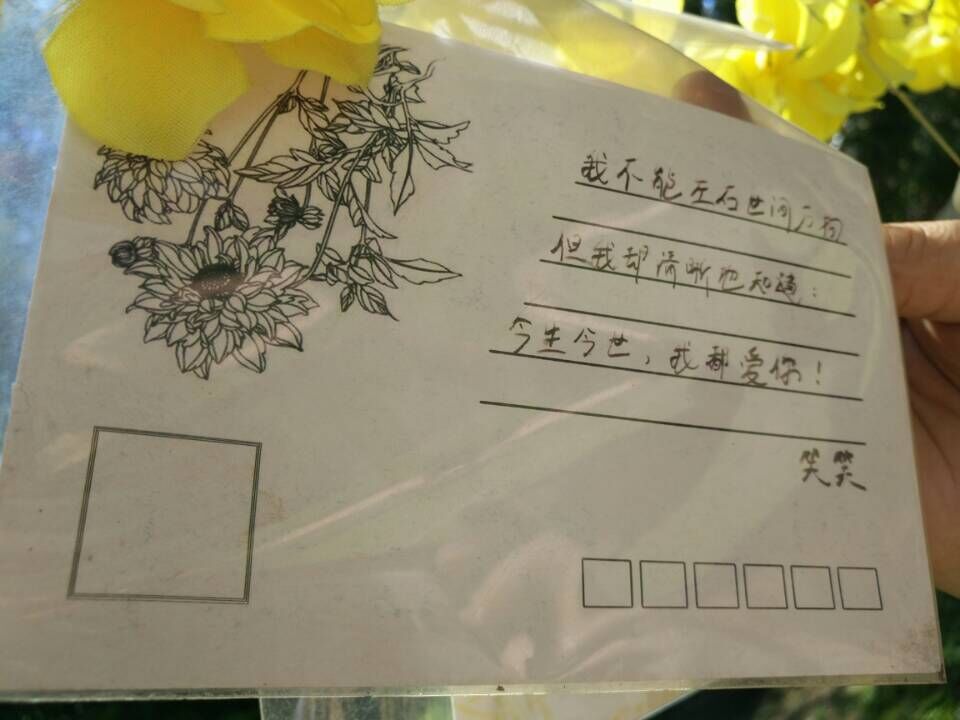 我不能左右世间万物
但我却清晰地知道：
今生今世，我都爱你！
笑笑